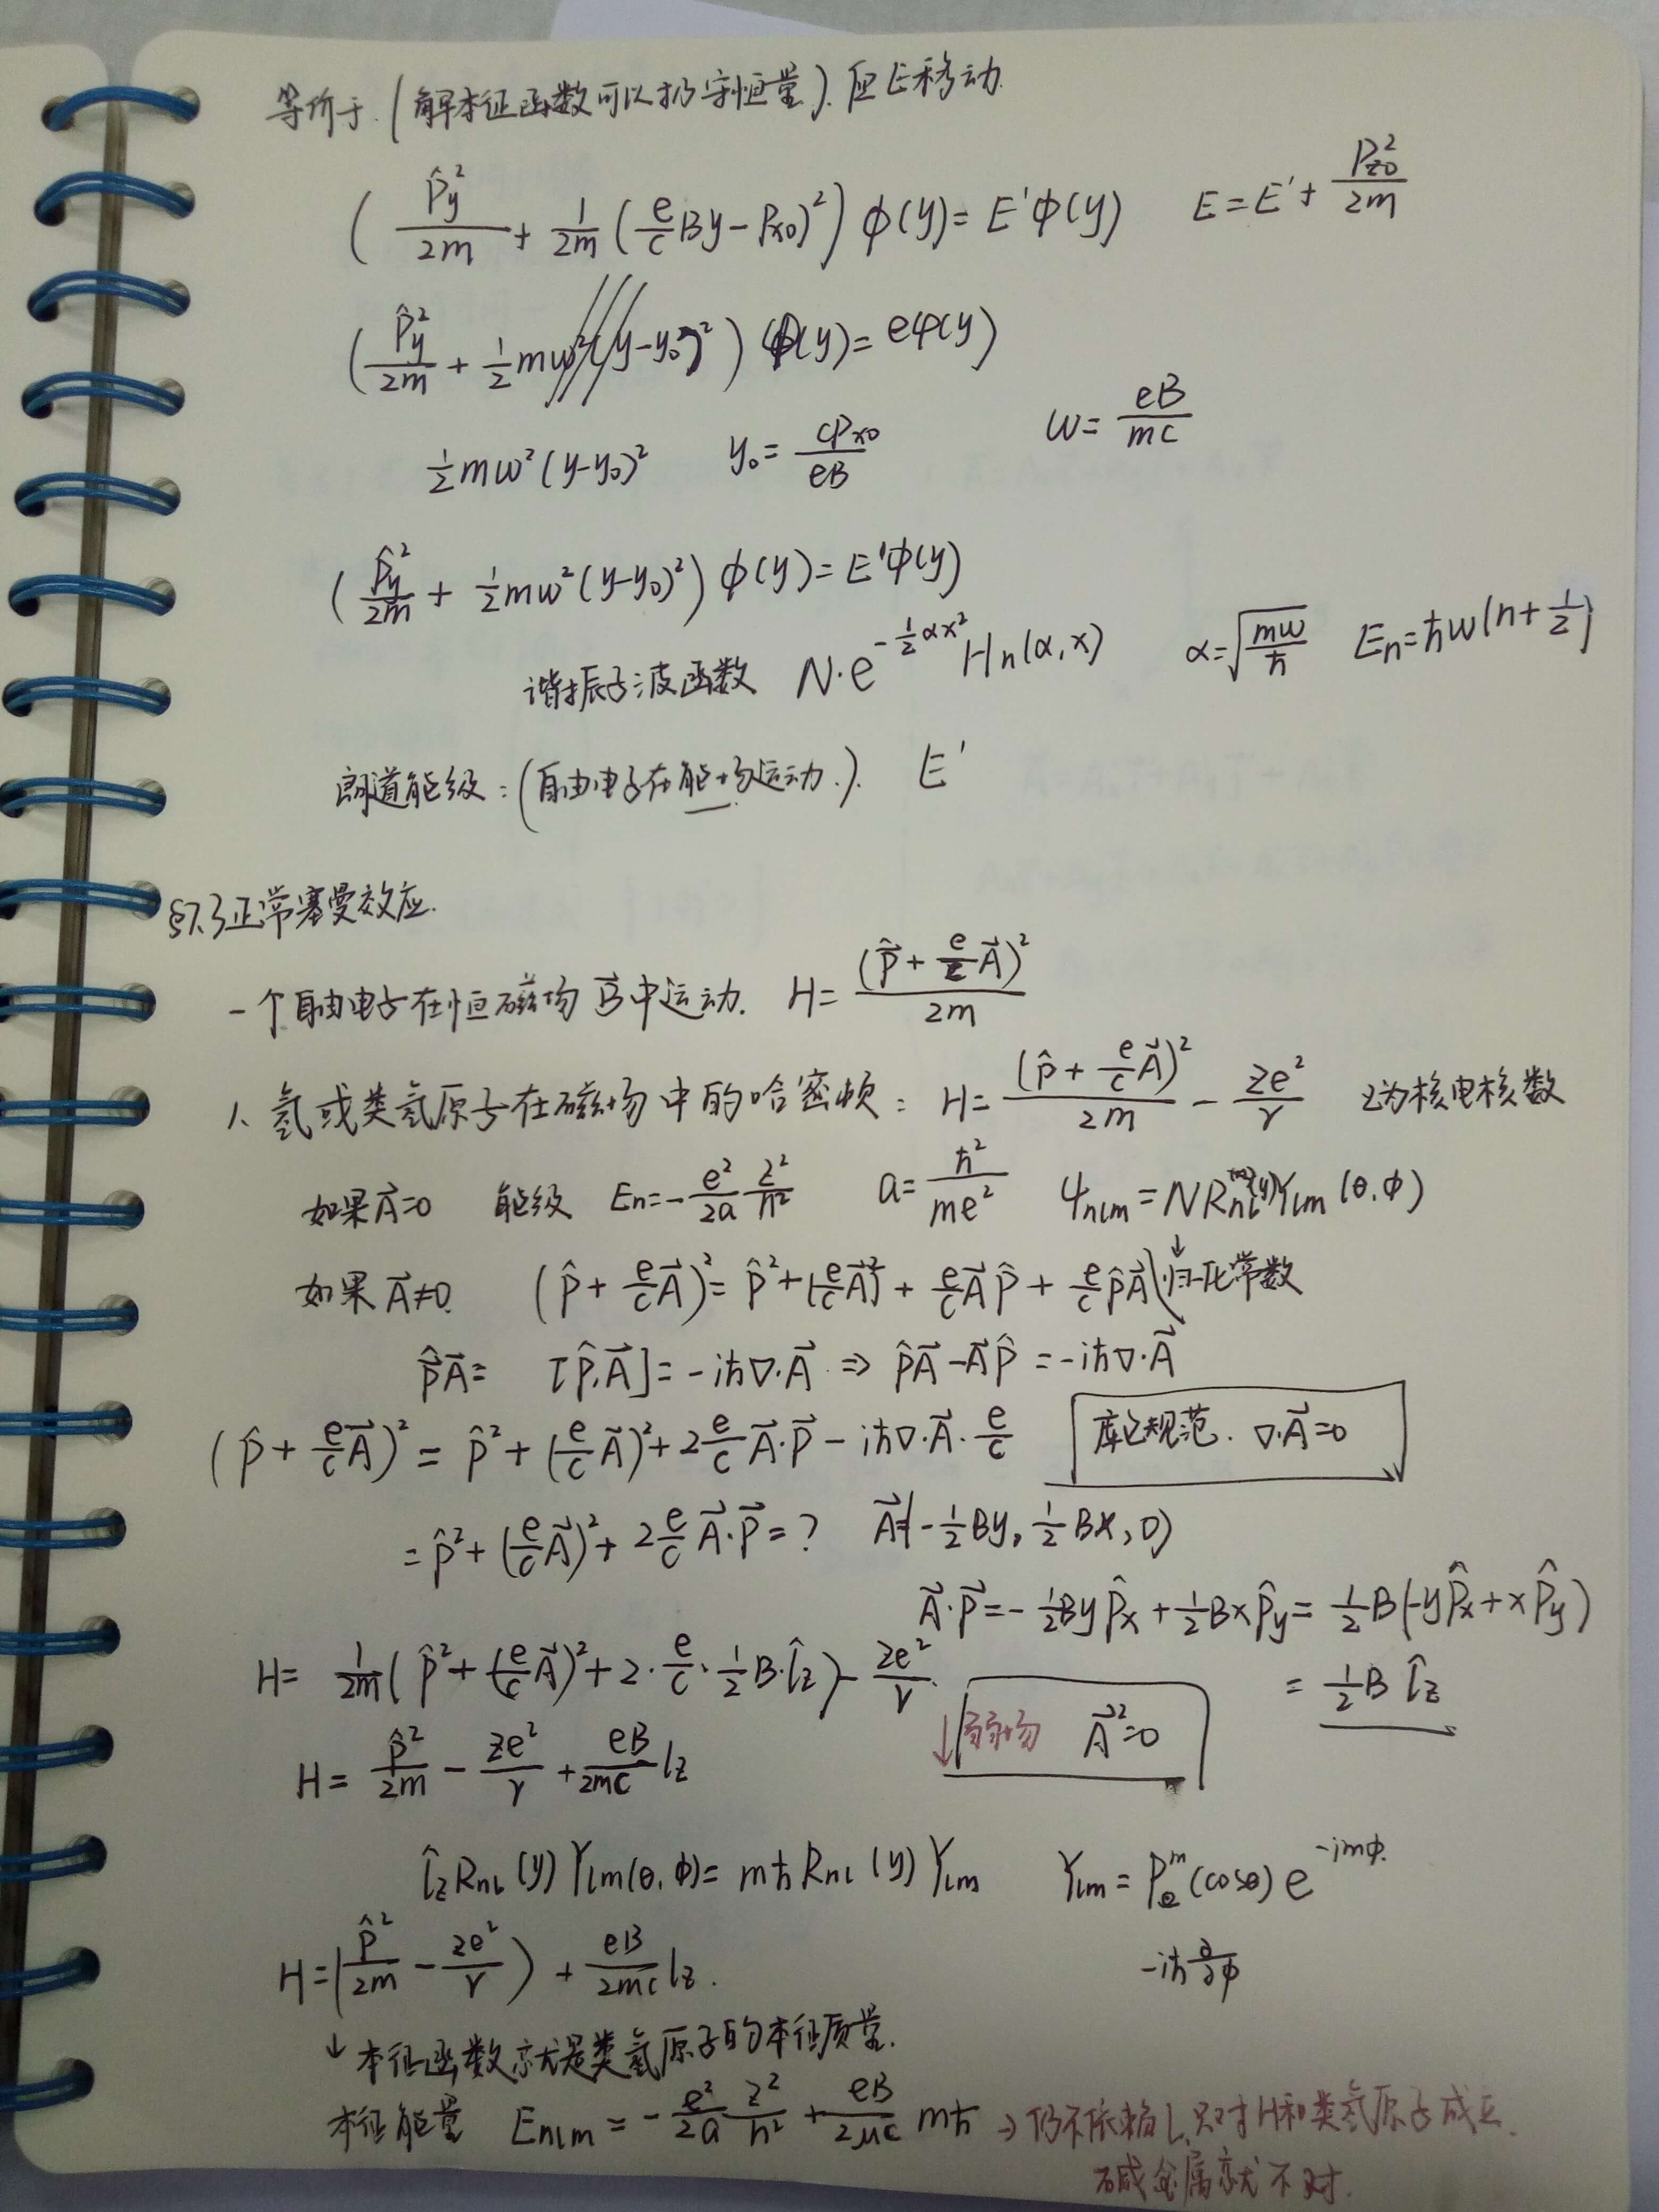 等价于.(解本征函数可以扔守恒量).但E移动.
( p̂y²/2m + 1/2m (e/c By - Px0)² ) φ(y) = E'φ(y)   E = E' + Pz0²/2m
( p̂y²/2m + 1/2 mω²(y-y0)² ) φ(y) = eφ(y)
1/2 mω²(y-y0)²   y0 = cPx0/eB   ω = eB/mc
( p̂y²/2m + 1/2 mω²(y-y0)² ) φ(y) = E'φ(y)
谐振子波函数 N·e^(-1/2 αx²) Hn(α,x)   α = √(mω/ħ)   En = ħω(n+1/2)
朗道能级:(自由电子在能场运动.).   E'
§7.3 正常塞曼效应.
一个自由电子在恒磁场 B⃗ 中运动.   H = (p̂ + e/c A⃗)²/2m
1、氢或类氢原子在磁场中的哈密顿: H = (p̂ + e/c A⃗)²/2m - Ze²/r   Z为核电核数
如果A⃗=0   能级 En = -e²/2a Z²/n²   a = ħ²/me²   ψnlm = N Rnl Ylm(θ,φ)
如果A⃗≠0.   (p̂ + e/c A⃗)² = p̂² + (e/c A⃗)² + e/c A⃗ p̂ + e/c p̂ A⃗   ↓归一化常数
p̂A⃗ =   [p̂,A⃗] = -iħ∇·A⃗ ⇒ p̂A⃗ - A⃗p̂ = -iħ∇·A⃗
(p̂ + e/c A⃗)² = p̂² + (e/c A⃗)² + 2 e/c A⃗·p⃗ - iħ∇·A⃗·e/c   库仑规范. ∇·A⃗=0
= p̂² + (e/c A⃗)² + 2 e/c A⃗·p⃗ = ?   A⃗(-1/2 By, 1/2 Bx, 0)
A⃗·p⃗ = -1/2 By p̂x + 1/2 Bx p̂y = 1/2 B(-y p̂x + x p̂y)
H = 1/2m ( p̂² + (e/c A⃗)² + 2·e/c·1/2 B·l̂z ) - Ze²/r.   = 1/2 B l̂z
↓弱场 A⃗²=0
H = p̂²/2m - Ze²/r + eB/2mc lz
l̂z Rnl(y) Ylm(θ,φ) = mħ Rnl(y) Ylm   Ylm = Pe^m(cosθ) e^(-imφ).
H = ( p̂²/2m - Ze²/r ) + eB/2mc lz.   -iħ ∂/∂φ
↓ 本征函数就是类氢原子的本征质量.
本征能量 Enlm = -e²/2a Z²/n² + eB/2μc mħ → 仍不依赖l,只对H和类氢原子成立.
碱金属就不对.